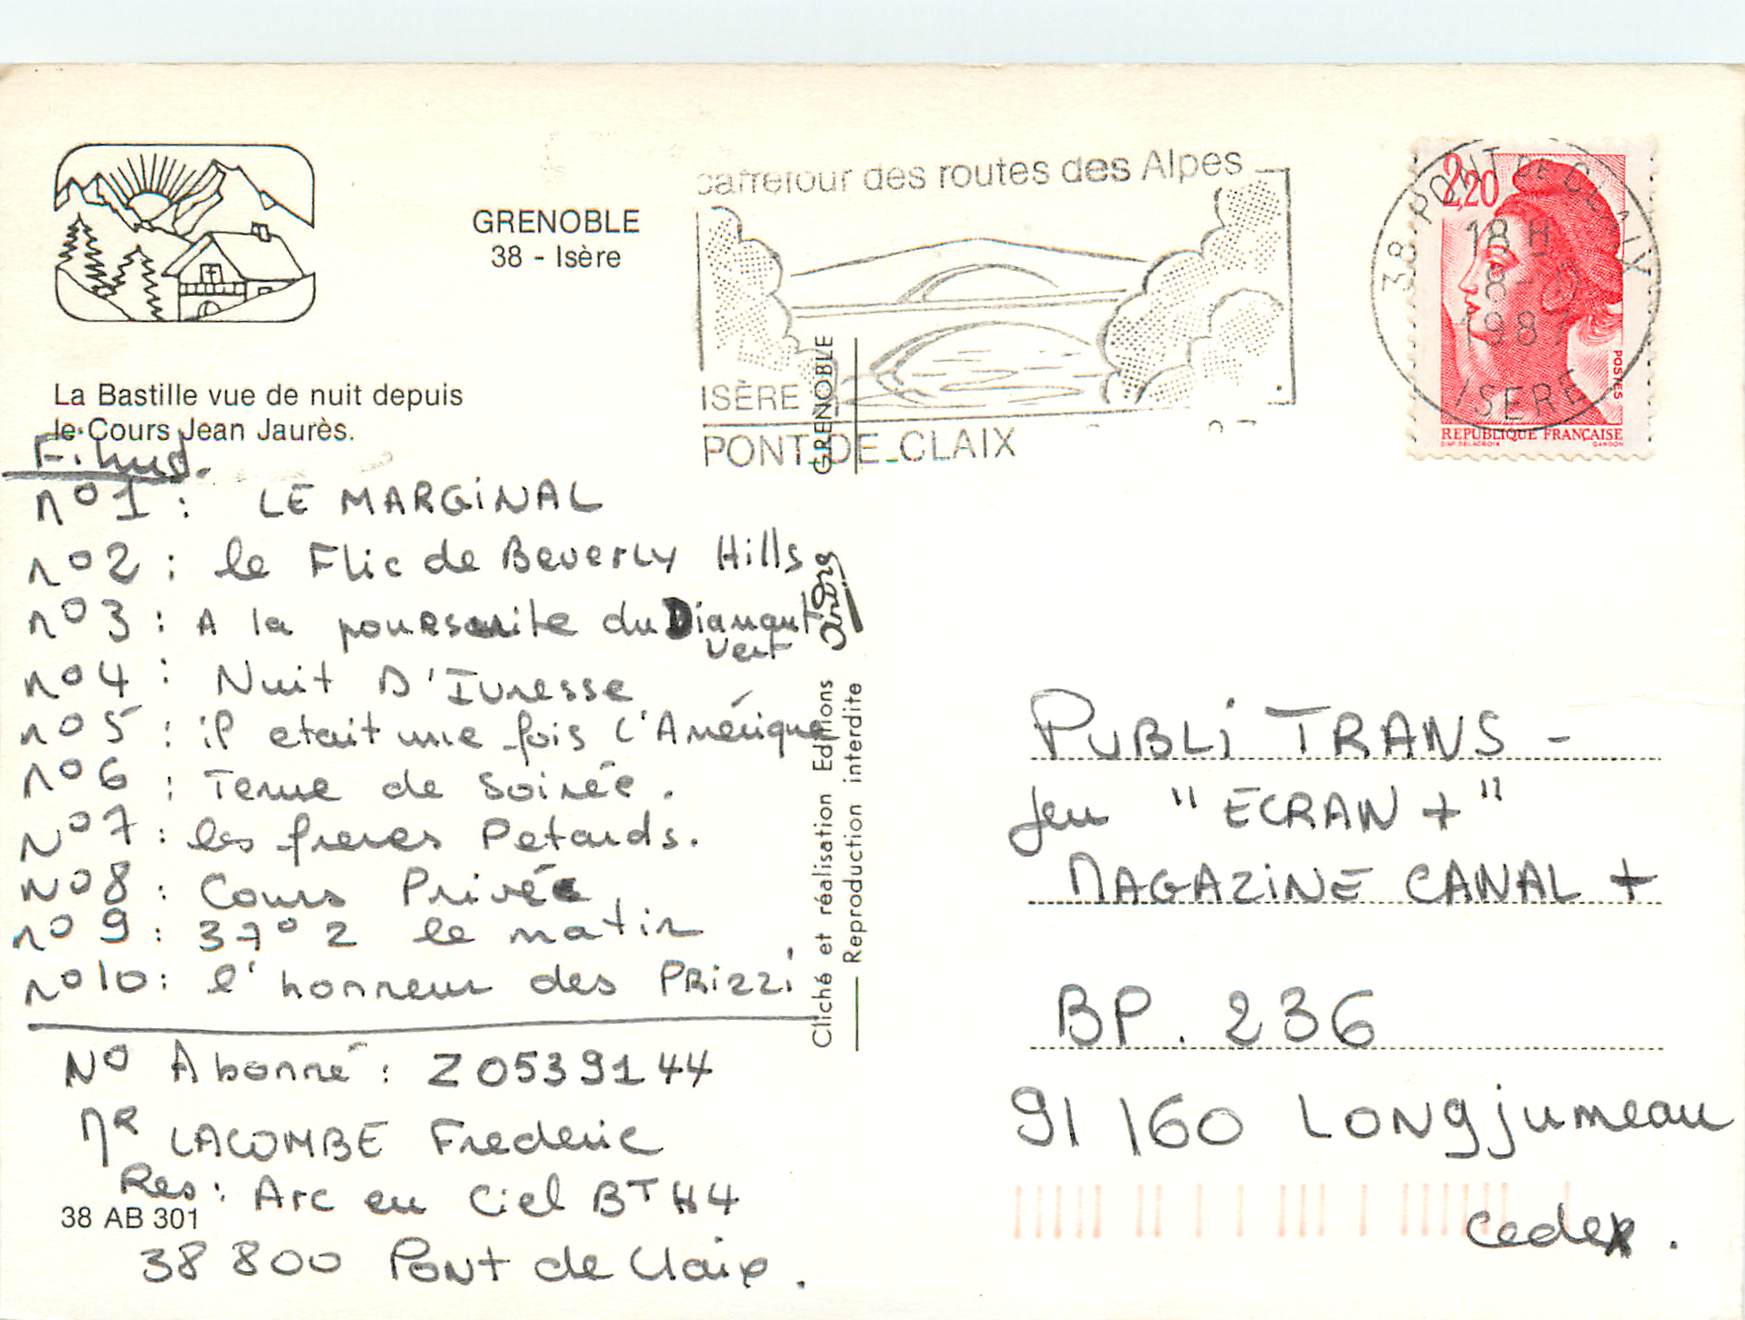 GRENOBLE
38 - Isère
La Bastille vue de nuit depuis
le Cours Jean Jaurès.
carrefour des routes des Alpes
ISÈRE
PONT-DE-CLAIX
2,20
POSTES
REPUBLIQUE FRANÇAISE
38 PONT DE CLAIX
18 H
198
ISERE
n°1 : LE MARGiNAL
n°2 : le Flic de Beverly Hills
n°3 : A la poursuite du Diamant
Vert
n°4 : Nuit D'Ivresse
n°5 : il etait une fois l'Amérique
n°6 : Tenue de Soirée.
N°7 : les freres Petards.
N°8 : Cours Privée
n°9 : 37°2 le matin
n°10 : l'honneur des PRizzi
N° Abonné : Z0539144
MR LACOMBE Frederic
Res : Arc en Ciel BT H4
38 AB 301
38 800 Pont de Claix.
GRENOBLE
Cliché et réalisation Editions
Reproduction interdite
PUBLi TRANS -
Jeu "ECRAN +"
MAGAZiNE CANAL +
BP. 236
91 160 LONgjumeau
cedex.